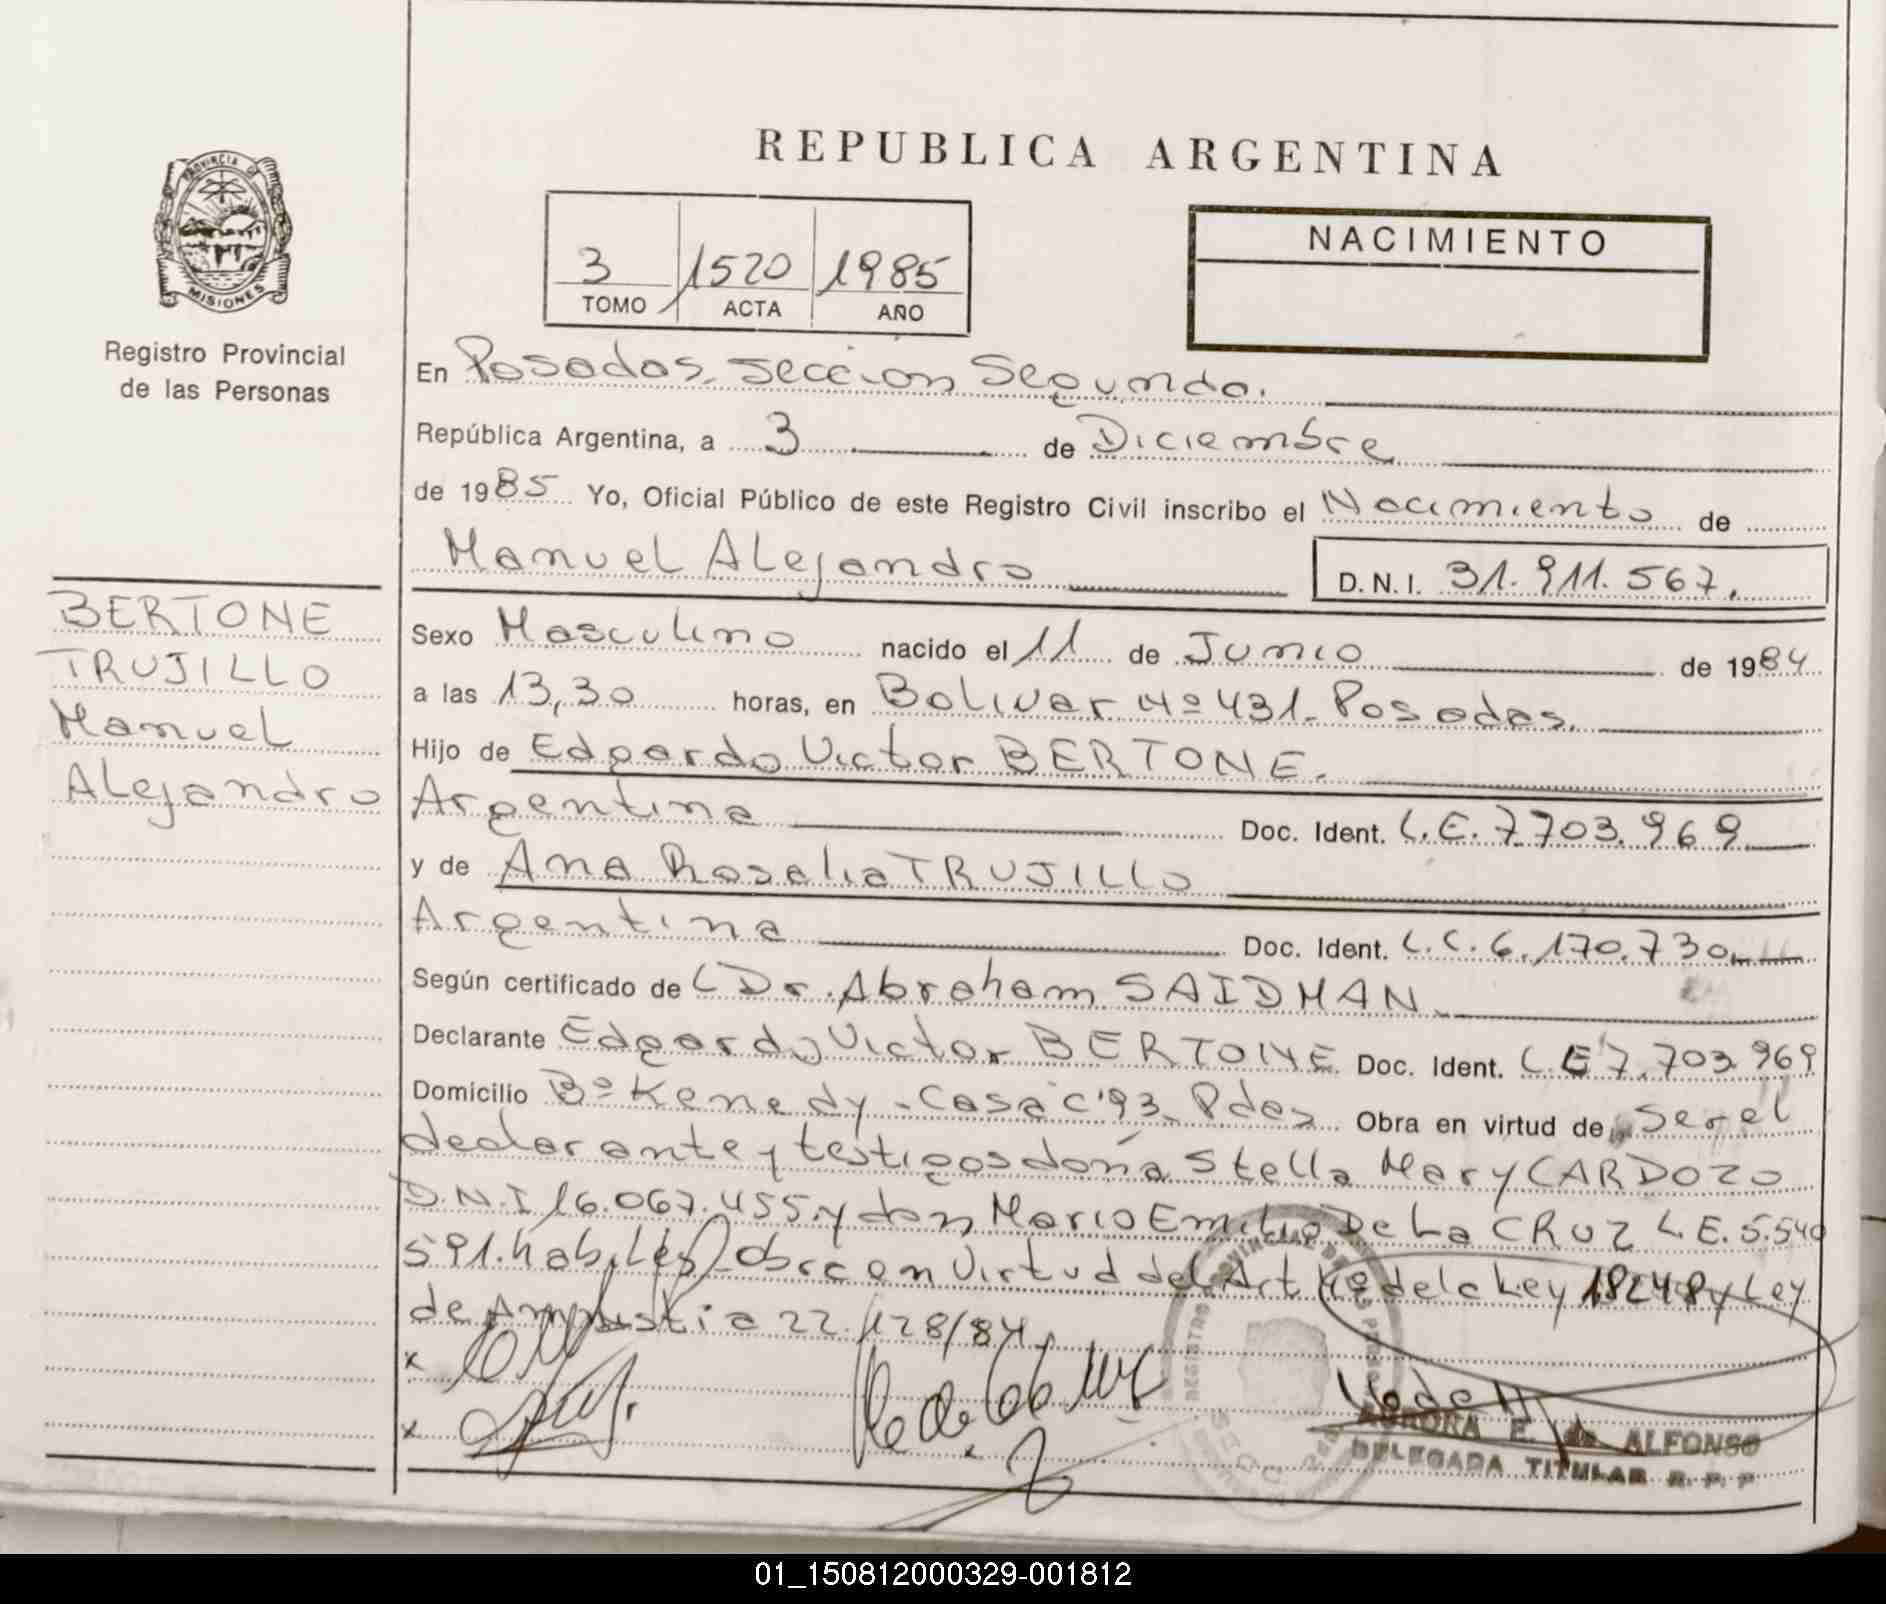 REPUBLICA ARGENTINA
PROVINCIA DE
MISIONES
Registro Provincial
de las Personas
3 1520 1985
TOMO ACTA AÑO
NACIMIENTO
En Posadas. Sección Segunda.
República Argentina, a 3 de Diciembre
de 1985 Yo, Oficial Público de este Registro Civil inscribo el Nacimiento de
Manuel Alejandro D.N.I. 31.911.567.
BERTONE
TRUJILLO
Manuel
Alejandro
Sexo Masculino nacido el 11 de Junio de 1984
a las 13,30 horas, en Bolivar Nº 431. Posadas.
Hijo de Edgardo Victor BERTONE.
Argentina Doc. Ident. L.E. 7.703.969
y de Ana Rosalia TRUJILLO
Argentina Doc. Ident. L.C. 6.170.730
Según certificado de Dr. Abraham SAIDMAN
Declarante Edgardo Victor BERTONE Doc. Ident. L.E 7.703.969
Domicilio Bº Kenedy - Casa C'93 Pdas Obra en virtud de Ser el
declarante y testigos doña Stella Mary CARDOZO
D.N.I 16.067.455. y don Mario Emilio De La CRUZ L.E. 5.540
591. habiles. Obra en Virtud del Art de la Ley 18248 y Ley
de Amnistia 22.128/84.
x
x
x
REGISTRO PROVINCIAL DE
AURORA E. de ALFONSO
DELEGADA TITULAR R. P. P
01_150812000329-001812